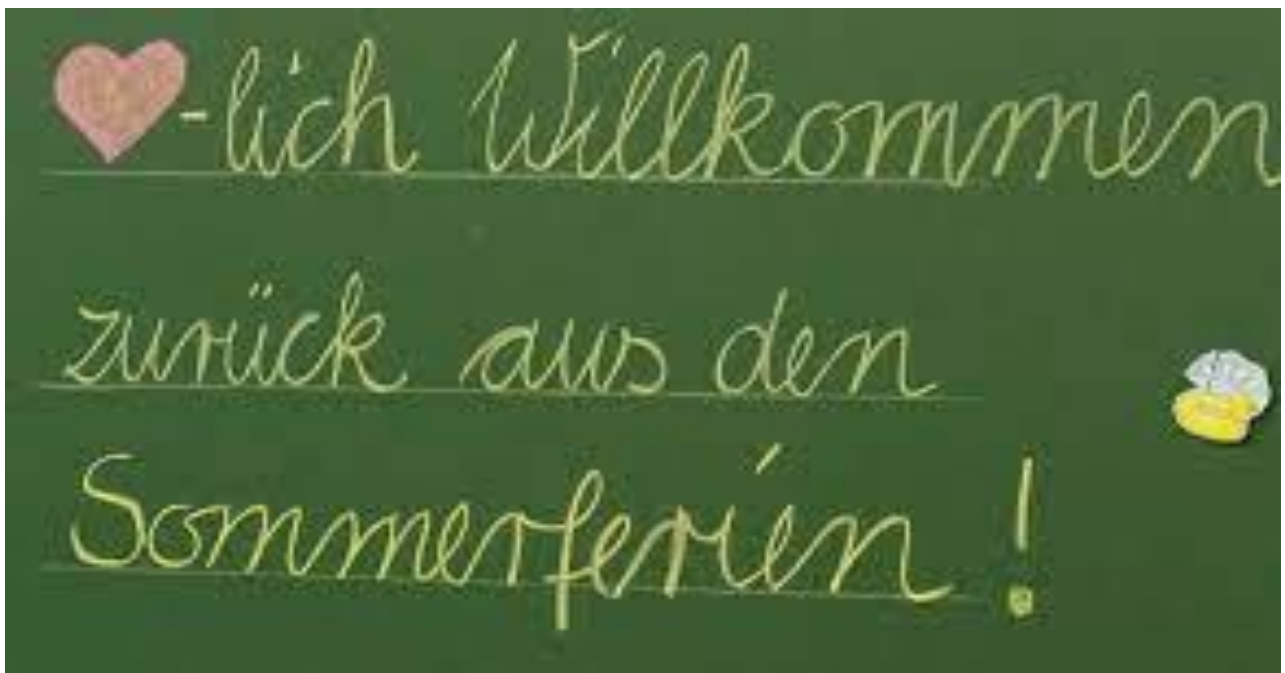 -lich Willkommen
zurück aus den
Sommerferien!